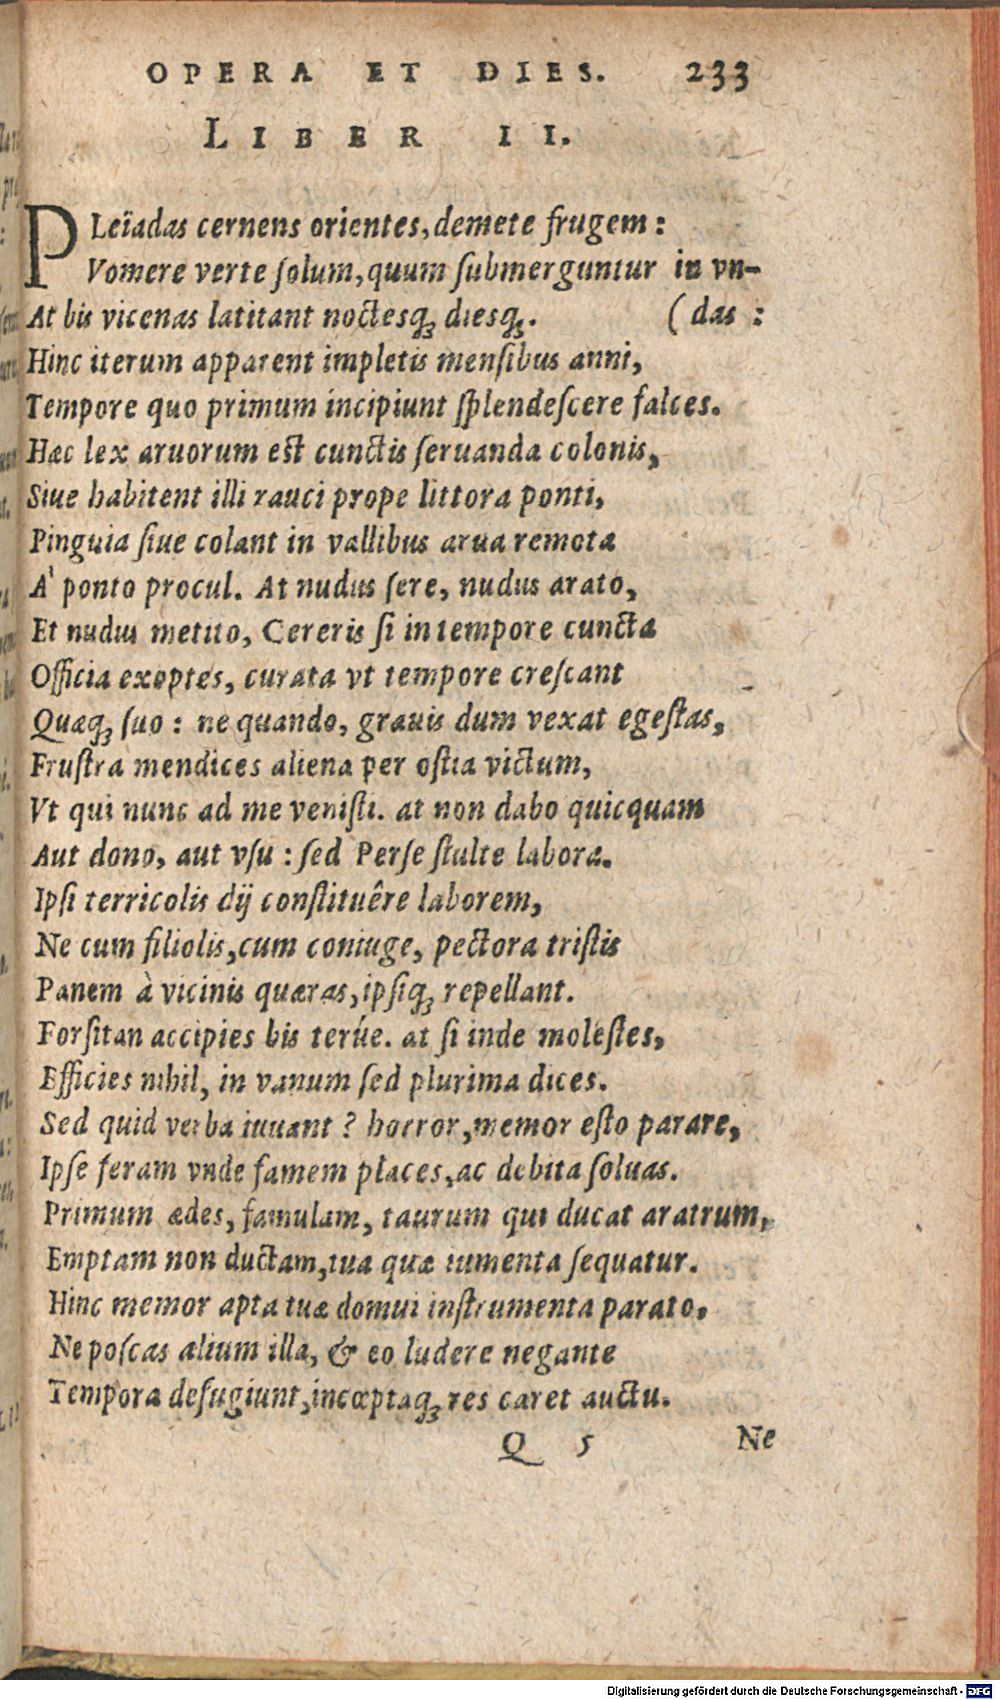 OPERA ET DIES. 233
LIBER II.
PLeïadas cernens orientes, demete frugem:
Vomere verte solum, quum submerguntur in vn-
At bis vicenas latitant noctesq́; diesq́;. (das:
Hinc iterum apparent impletis mensibus anni,
Tempore quo primum incipiunt splendescere falces.
Hæc lex aruorum est cunctis seruanda colonis,
Siue habitent illi rauci prope littora ponti,
Pinguia siue colant in vallibus arua remota
A' ponto procul. At nudus sere, nudus arato,
Et nudus metito, Cereris si in tempore cuncta
Officia exoptes, curata vt tempore crescant
Quæq́; suo: ne quando, grauis dum vexat egestas,
Frustra mendices aliena per ostia victum,
Vt qui nunc ad me venisti. at non dabo quicquam
Aut dono, aut vsu: sed Perse stulte labora.
Ipsi terricolis dij constituêre laborem,
Ne cum filiolis, cum coniuge, pectora tristis
Panem à vicinis quæras, ipsiq́; repellant.
Forsitan accipies bis terúe. at si inde molestes,
Efficies nihil, in vanum sed plurima dices.
Sed quid verba iuuant? horror, memor esto parare,
Ipse feram vnde famem places, ac debita soluas.
Primum ædes, famulam, taurum qui ducat aratrum,
Emptam non ductam, tua quæ iumenta sequatur.
Hinc memor apta tuæ domui instrumenta parato,
Ne poscas alium illa, & eo ludere negante
Tempora defugiunt, incœptaq́; res caret auctu.
Q 5 Ne
Digitalisierung gefördert durch die Deutsche Forschungsgemeinschaft - DFG